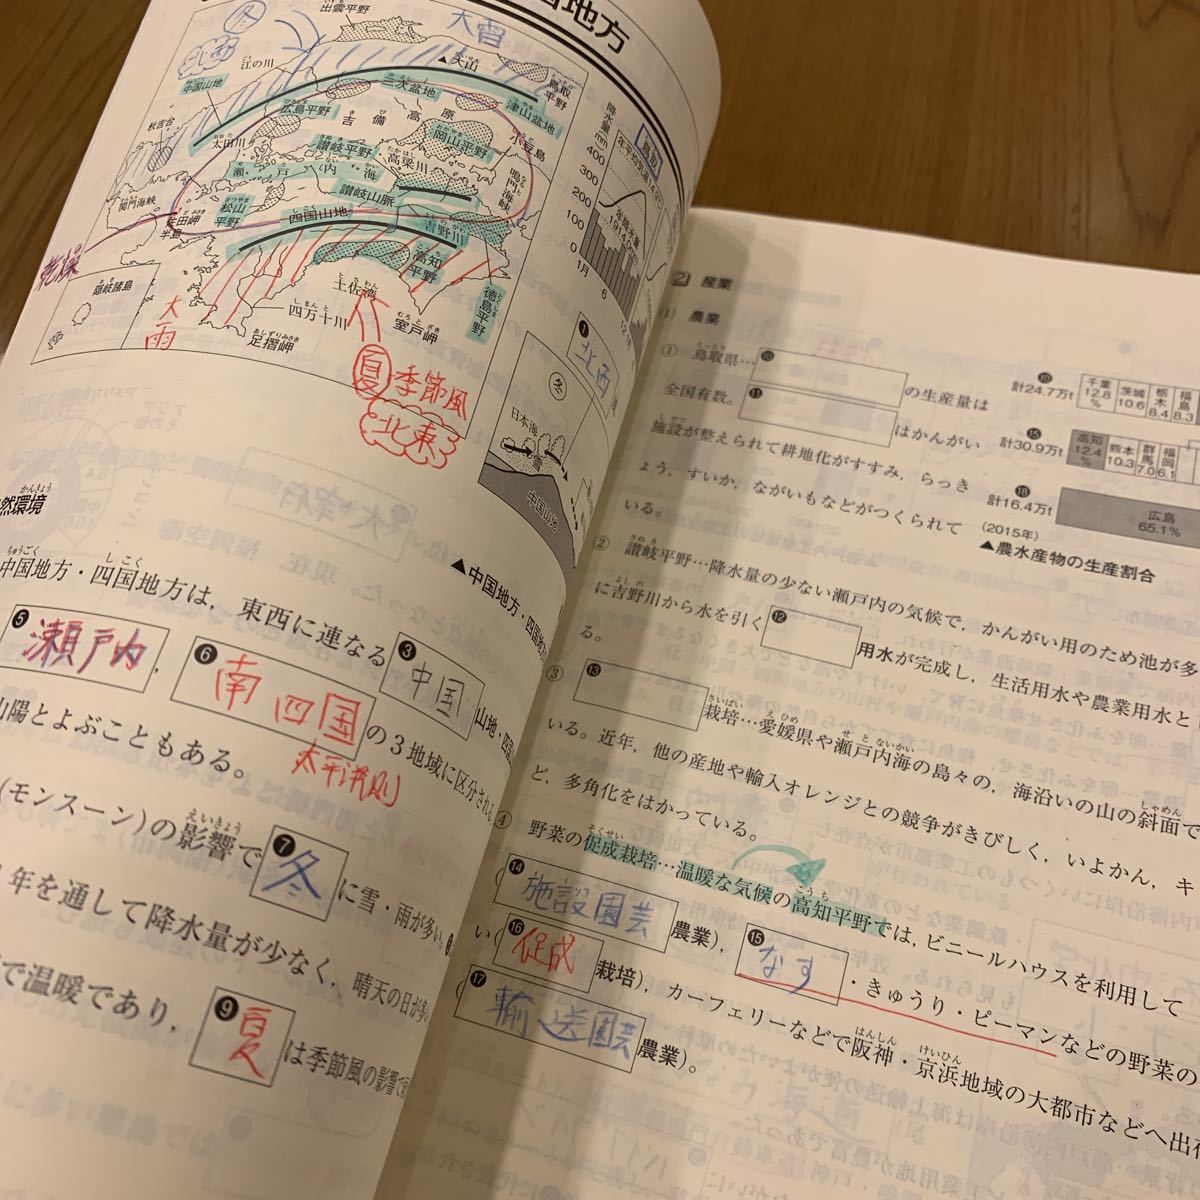 国地方
冬
北西
大雪
出雲平野
江の川
大山
鳥取平野
中国山地
広島平野
三次盆地
津山盆地
秋吉台
太田川
吉備高原
岡山平野
小豆島
讃岐平野
高梁川
瀬戸内海
鳴門海峡
讃岐山脈
関門海峡
松山平野
佐田岬半島
四国山地
吉野川
高知平野
徳島平野
乾燥
隠岐諸島
土佐湾
大雨
四万十川
室戸岬
足摺岬
夏 季節風
北東
降水量
mm
400
300
200
100
0
1月
6
12
鳥取
年降水量
1914
❶
北西
冬
日本海
雪
中国山地
▲中国地方・四国地
然環境
中国地方・四国地方は，東西に連なる❸中国山地・四国
❺瀬戸内，❻南四国の3地域に区分される
太平洋側
山陽とよぶこともある。
(モンスーン)の影響で❼冬に雪・雨が多い。
年を通して降水量が少なく，晴天の日が多
で温暖であり，❾夏は季節風の影響
2 産業
(1) 農業
① 鳥取県…❿の生産量は
全国有数。⓫はかんがい
施設が整えられて耕地化がすすみ，らっき
ょう，すいか，ながいもなどがつくられて
いる。
❿
計24.7万t
千葉 12.8%
茨城 10.6
栃木 8.4
福島 8.3
⓯
計30.9万t
高知 12.4%
熊本 10.3
群馬 7.0
福岡 6.1
⓲
計16.4万t
広島 65.1%
(2015年)
▲農水産物の生産割合
② 讃岐平野…降水量の少ない瀬戸内の気候で，かんがい用のため池が多
に吉野川から水を引く⓬用水が完成し，生活用水や農業用水と
る。
③ ⓭栽培…愛媛県や瀬戸内海の島々の，海沿いの山の斜面で
いる。近年，他の産地や輸入オレンジとの競争がきびしく，いよかん，キ
ど，多角化をはかっている。
④ 野菜の促成栽培…温暖な気候の高知平野では，ビニールハウスを利用して
(⓮施設園芸農業)，⓯なす・きゅうり・ピーマンなどの野菜の
い(⓰促成栽培)，カーフェリーなどで阪神・京浜地域の大都市などへ出荷
(⓱輸送園芸農業)。